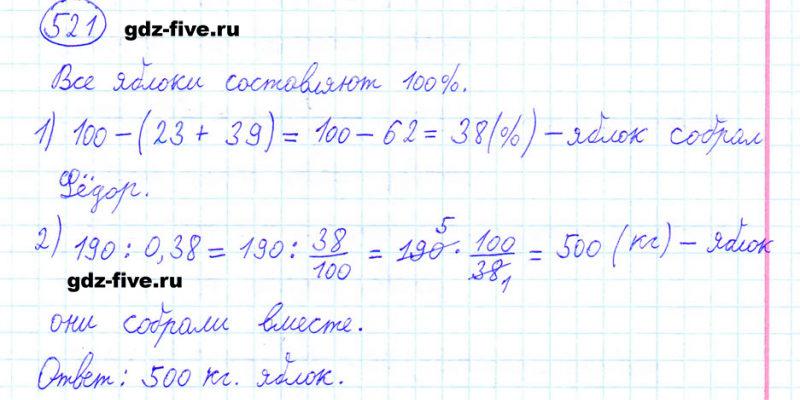 521 gdz-five.ru
Все яблоки составляют 100%.
1) 100 - (23 + 39) = 100 - 62 = 38(%) - яблок собрал
Фёдор.
2) 190 : 0,38 = 190 : 38/100 = 190 5 · 100/38 1 = 500 (кг) - яблок
gdz-five.ru
они собрали вместе.
Ответ: 500 кг. яблок.